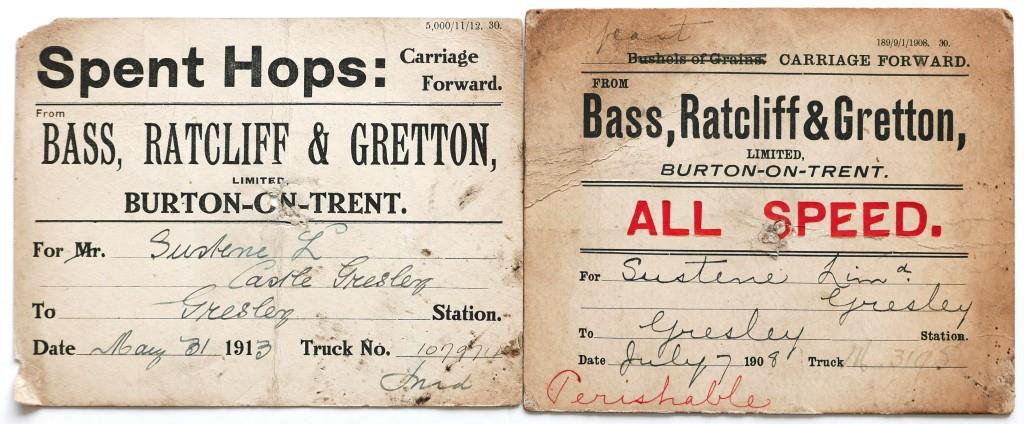 5,000/11/12. 30.
Spent Hops: Carriage
Forward.
From
BASS, RATCLIFF & GRETTON,
LIMITED,
BURTON-ON-TRENT.
For Mr. Sustene L
Castle Gresley
To Gresley Station.
Date May 31 1913 Truck No.
yeast
189/9/1/1908. 30.
Bushels of Grains. CARRIAGE FORWARD.
FROM
Bass, Ratcliff & Gretton,
LIMITED,
BURTON-ON-TRENT.
ALL SPEED.
For Sustene Limd.
Gresley
To Gresley Station.
Date July 7 1908 Truck
Perishable